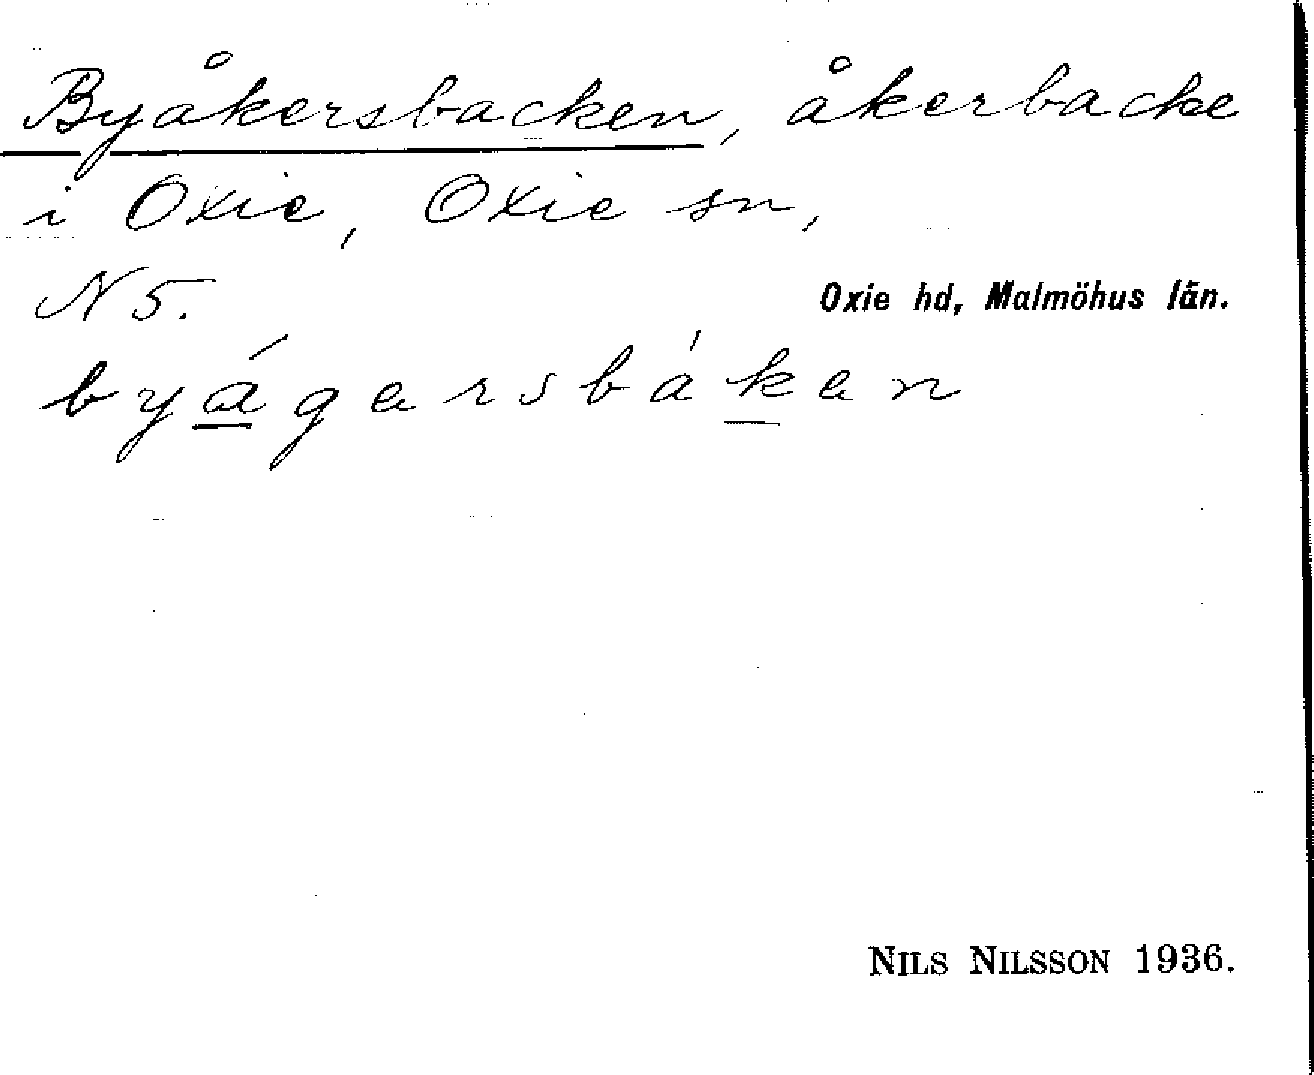 Byåkersbacken, åkerbacke
i Oxie, Oxie sn,
N 5.
Oxie hd, Malmöhus län.
byágarsbákan
NILS NILSSON 1936.